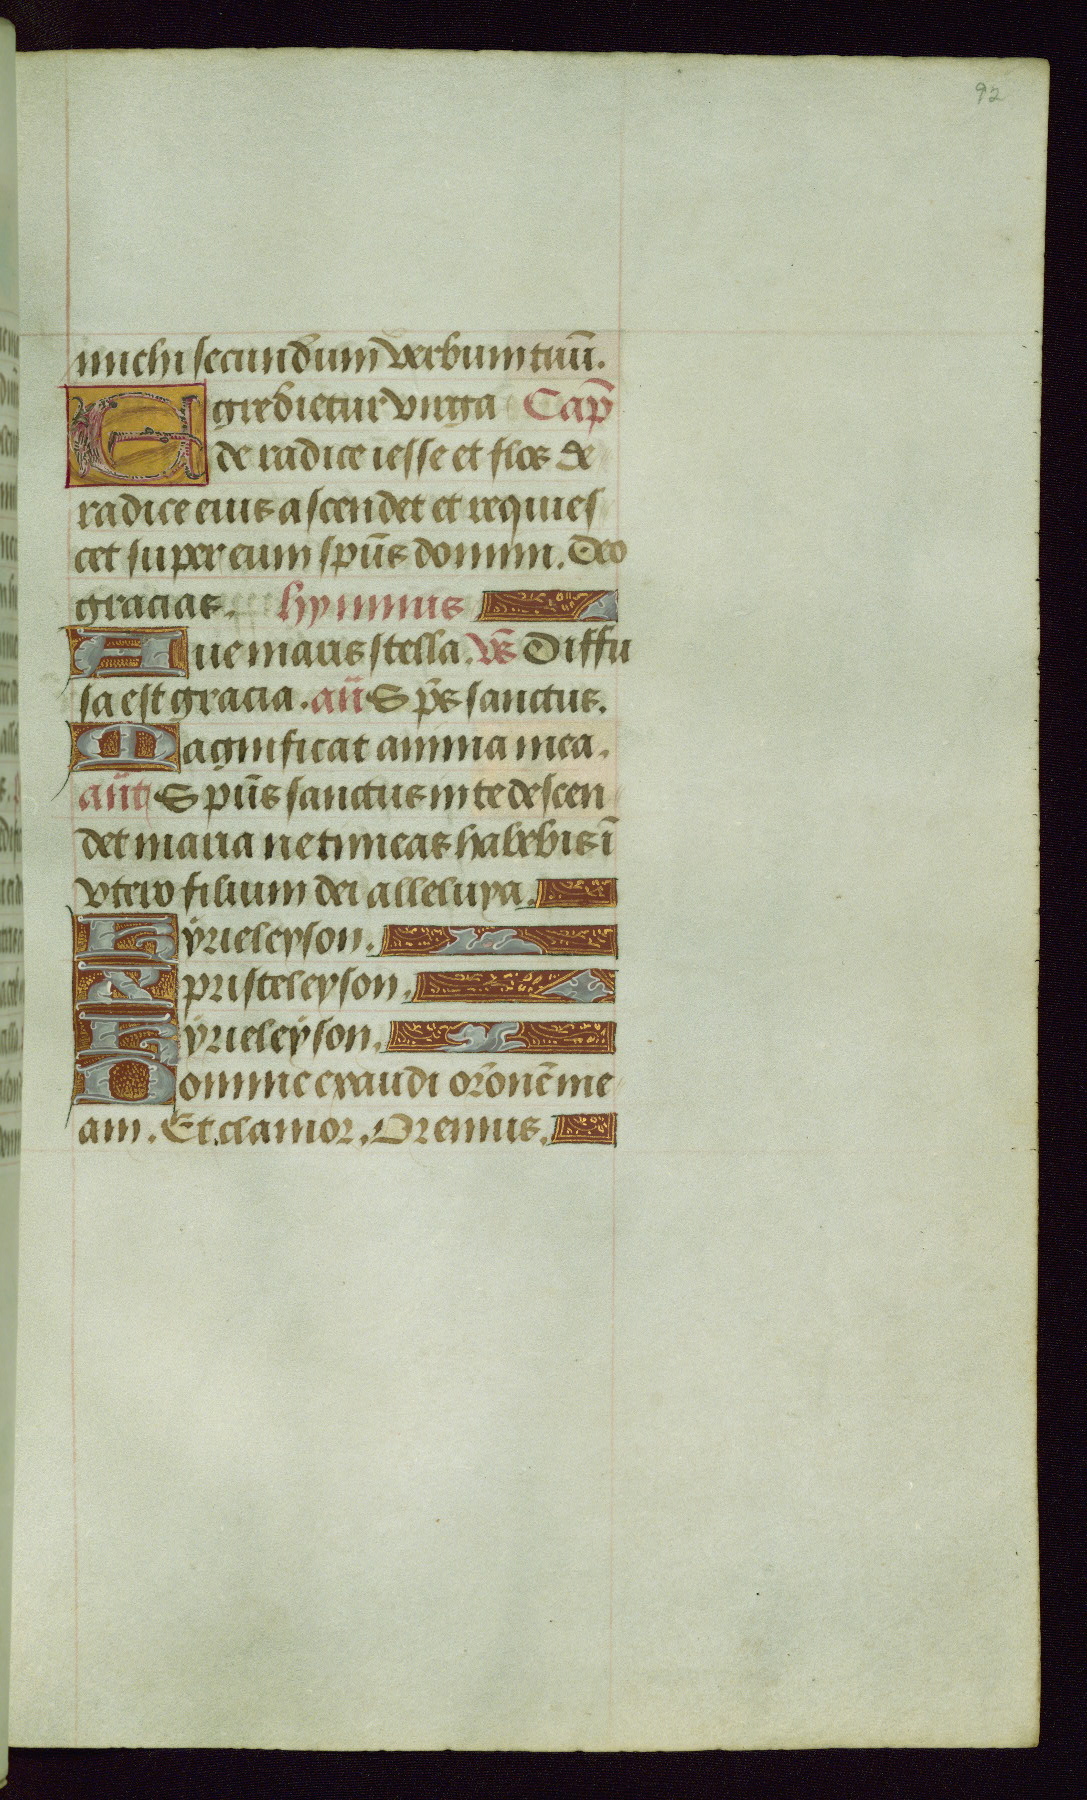 92
michi secundum verbum tuū.
Egredietur virga Cap̄
de radice iesse et flos de
radice eius ascendet et requies
cet super eum spūs domini. Deo
gracias. hymnus
Aue maris stella. v̄s Diffu
sa est gracia. añ Sp̄s sanctus.
Magnificat anima mea.
añt Spūs sanctus in te descen
det maria ne timeas habebis ī
vtero filium dei alleluya.
Kyrieleyson.
Xpristeleyson.
Kyrieleyson.
Domine exaudi or̄onē me
am. Et clamor. Oremus.